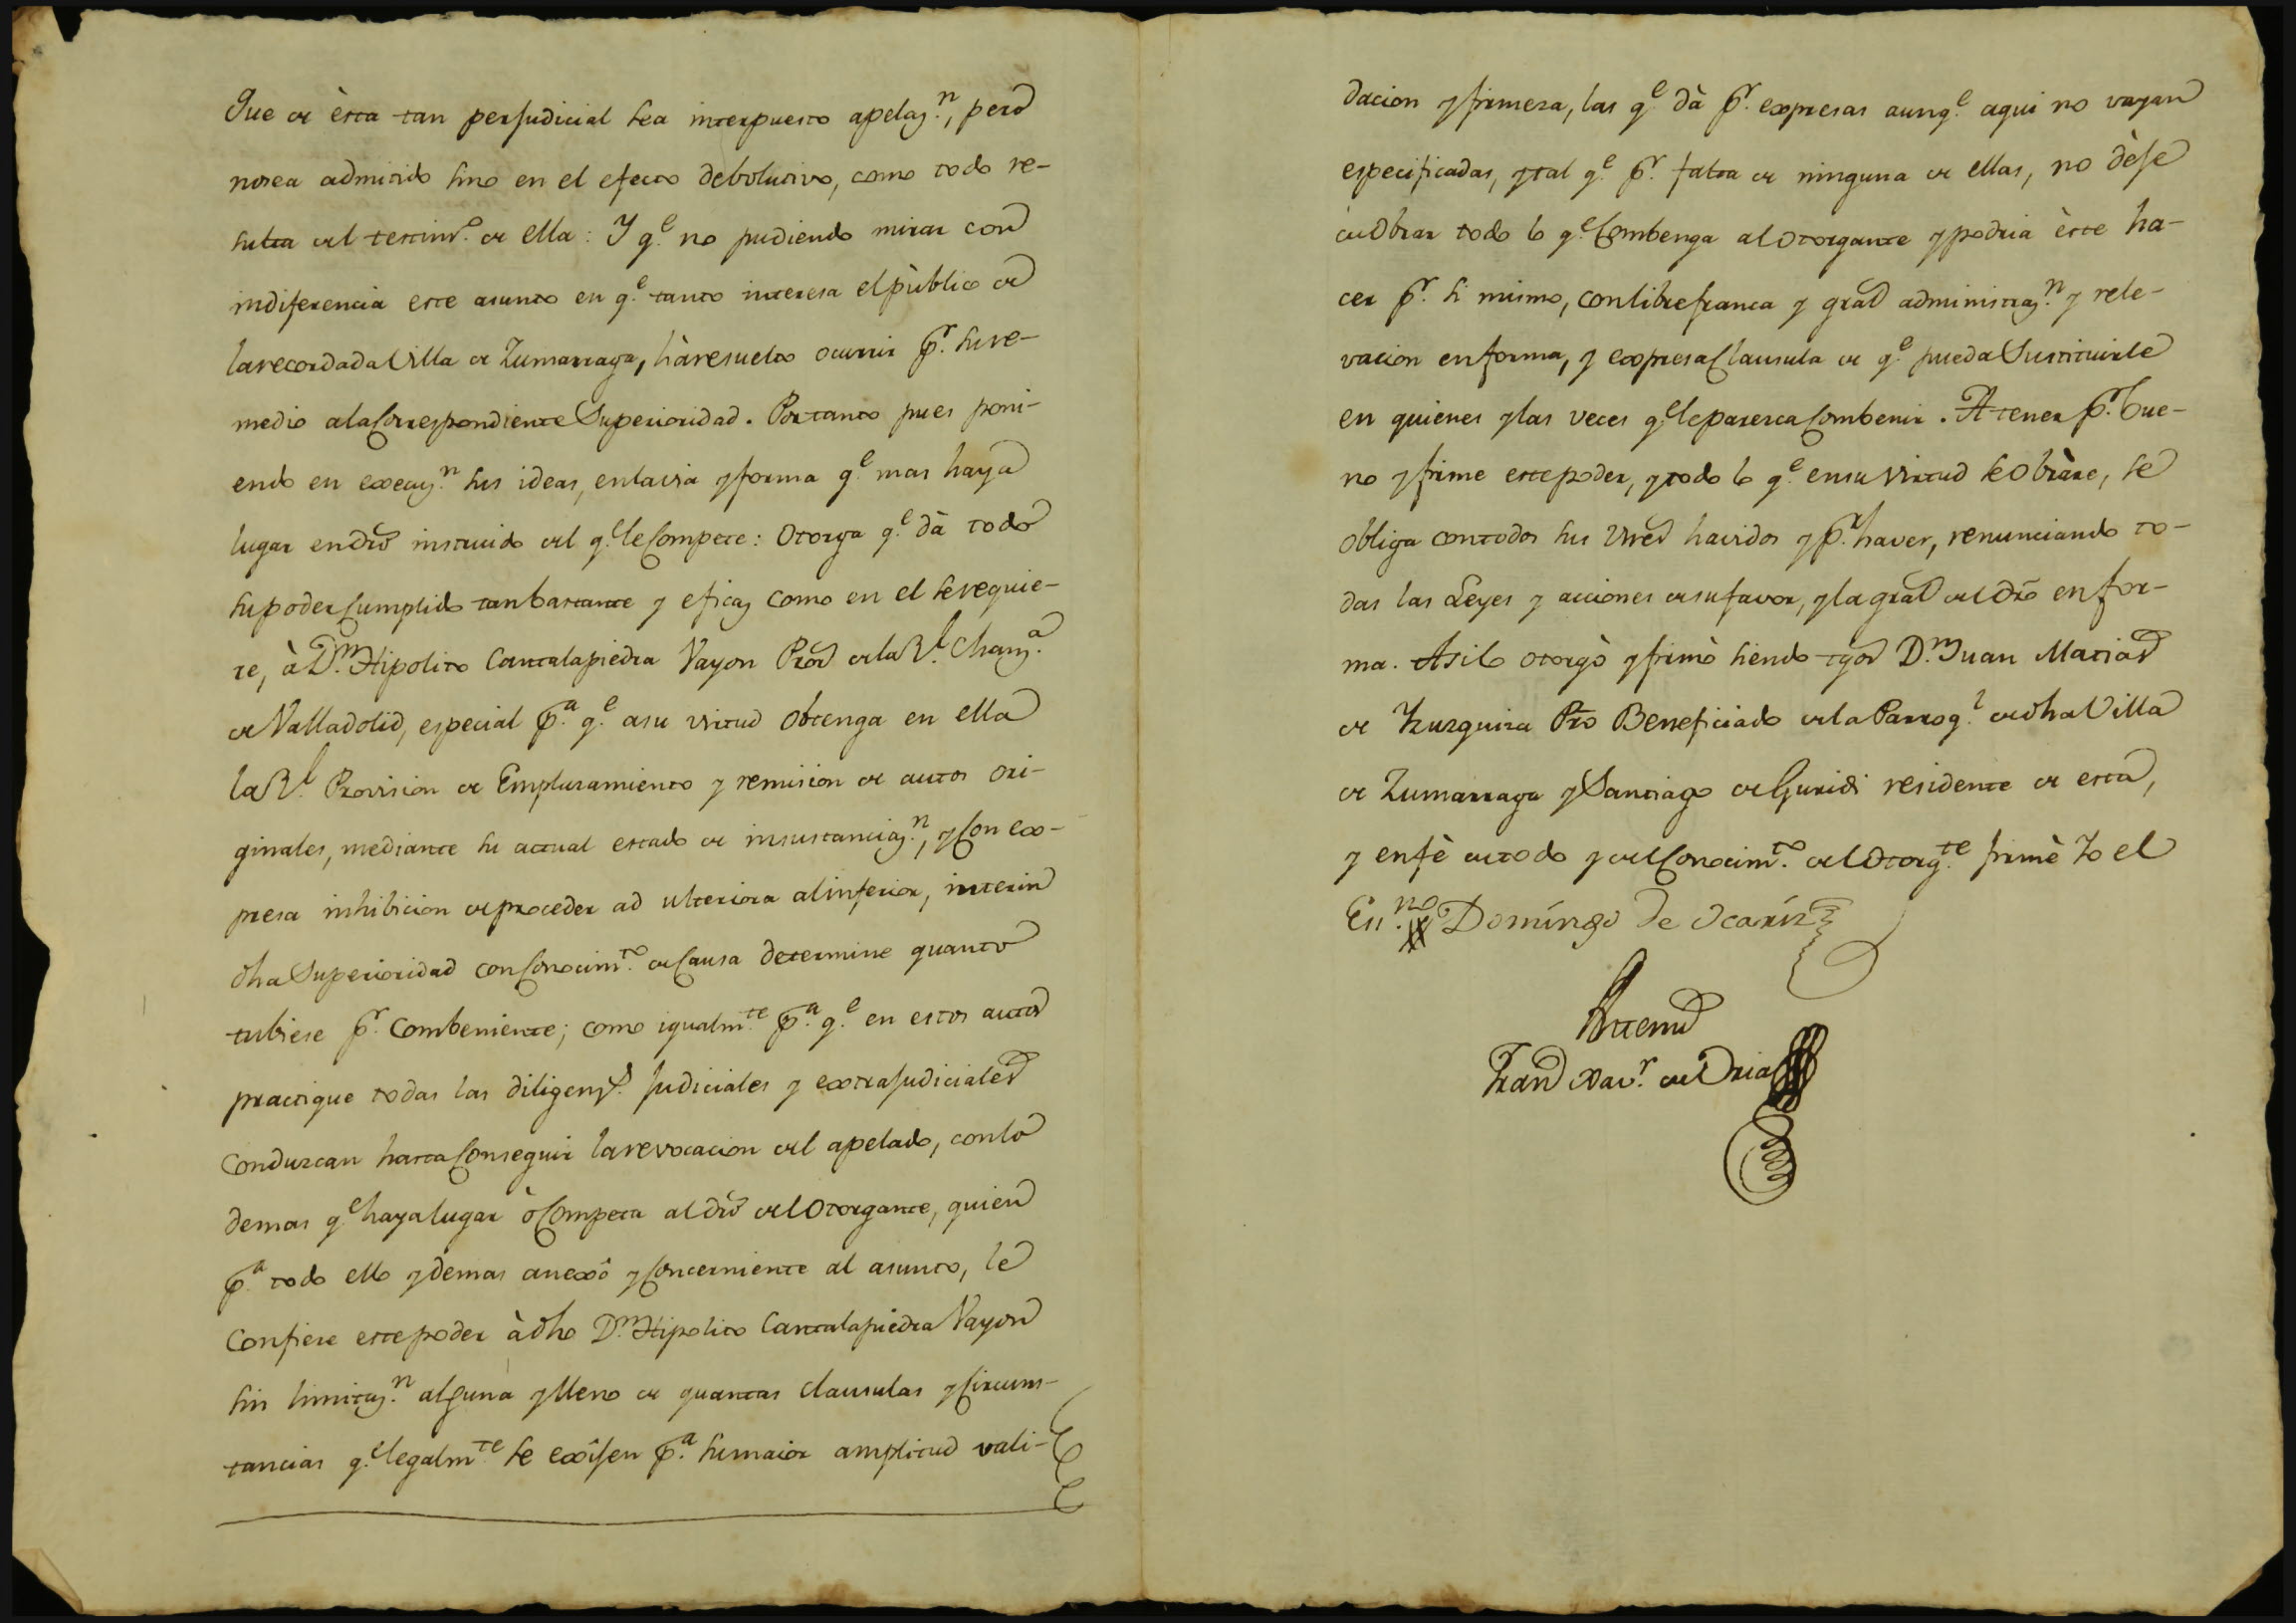 Que de èsta tan perjudicial sea interpuesto apelaz.n, pero
nosea admitido sino en el efecto debolutivo, como todo re-
sulta del testim.o de ella: Y q.e no pudiendo mirar con
indiferencia este asunto en q.e tanto interesa el pùblico de
la recordada Villa de Zumarraga, hà resuelto ocurrir p.r su re-
medio ala Correspondiente Superioridad. Por tanto pues poni-
endo en execuz.n sus ideas, en la via y forma q.e mas haya
lugar en dro instruido del q.e le Compete: Otorga q.e dà todo
su poder Cumplido tan bastante y eficaz como en el se requie-
re, à D.n Hipolito Cantalapiedra Vayon Pror de la R.l Chanz.a
de Valladolid, especial p.a q.e asu virtud obtenga en ella
la R.l Provision de Emplazamiento y remision de autos ori-
ginales, mediante su actual estado de insustanciaz.n, y Con ex-
presa inhibicion de proceder ad ulteriora al inferior, interin
dha Superioridad con Conocim.to de Causa determine quanto
tubiese p.r Combeniente; como igualm.te p.a q.e en estos autos
practique todas las diligenz.s Judiciales y extrajudiciales
Conduzcan hasta Conseguir la revocacion del apelado, con lo
demas q.e haya lugar ò Competa al dro del Otorgante, quien
p.a todo ello y demas anexô y Concerniente al asunto, le
Confiere este poder à dho D.n Hipolito Cantalapiedra Vayon
sin limitaz.n alguna y lleno de quantas clausulas y Circuns-
tancias q.e legalm.te se exîjen p.a su maior amplitud vali-
dacion y firmeza, las q.e dà p.r expresas aunq.e aqui no vayan
especificadas, y tal q.e p.r falta de ninguna de ellas, no dèje
de obrar todo lo q.e Combenga al Otorgante y podria èste ha-
cer p.r si mismo, con libre franca y gral administraz.n y rele-
vacion en forma, y expresa Clausula de q.e pueda Sustituirle
en quienes y las veces q.e le parezca Combenir. A tener p.r bue-
no y firme este poder, y todo lo q.e en su virtud se obràre, se
obliga con todos sus vnes havidos y p.r haver, renunciando to-
das las Leyes y acciones de su favor, y la gral del dro en for-
ma. Asi lo otorgò y firmò siendo tgos D.n Juan Matias
de Yzuzquiza Pro Beneficiado de la Parroq.l de dha Villa
de Zumarraga y Santiago de Guridi residente de esta,
y en fè de todo y del Conocim.to del Otorg.te firmè Yo el
Es.no Domíngo de Ocaríz
Antemi
Fran Xav.r de Oria